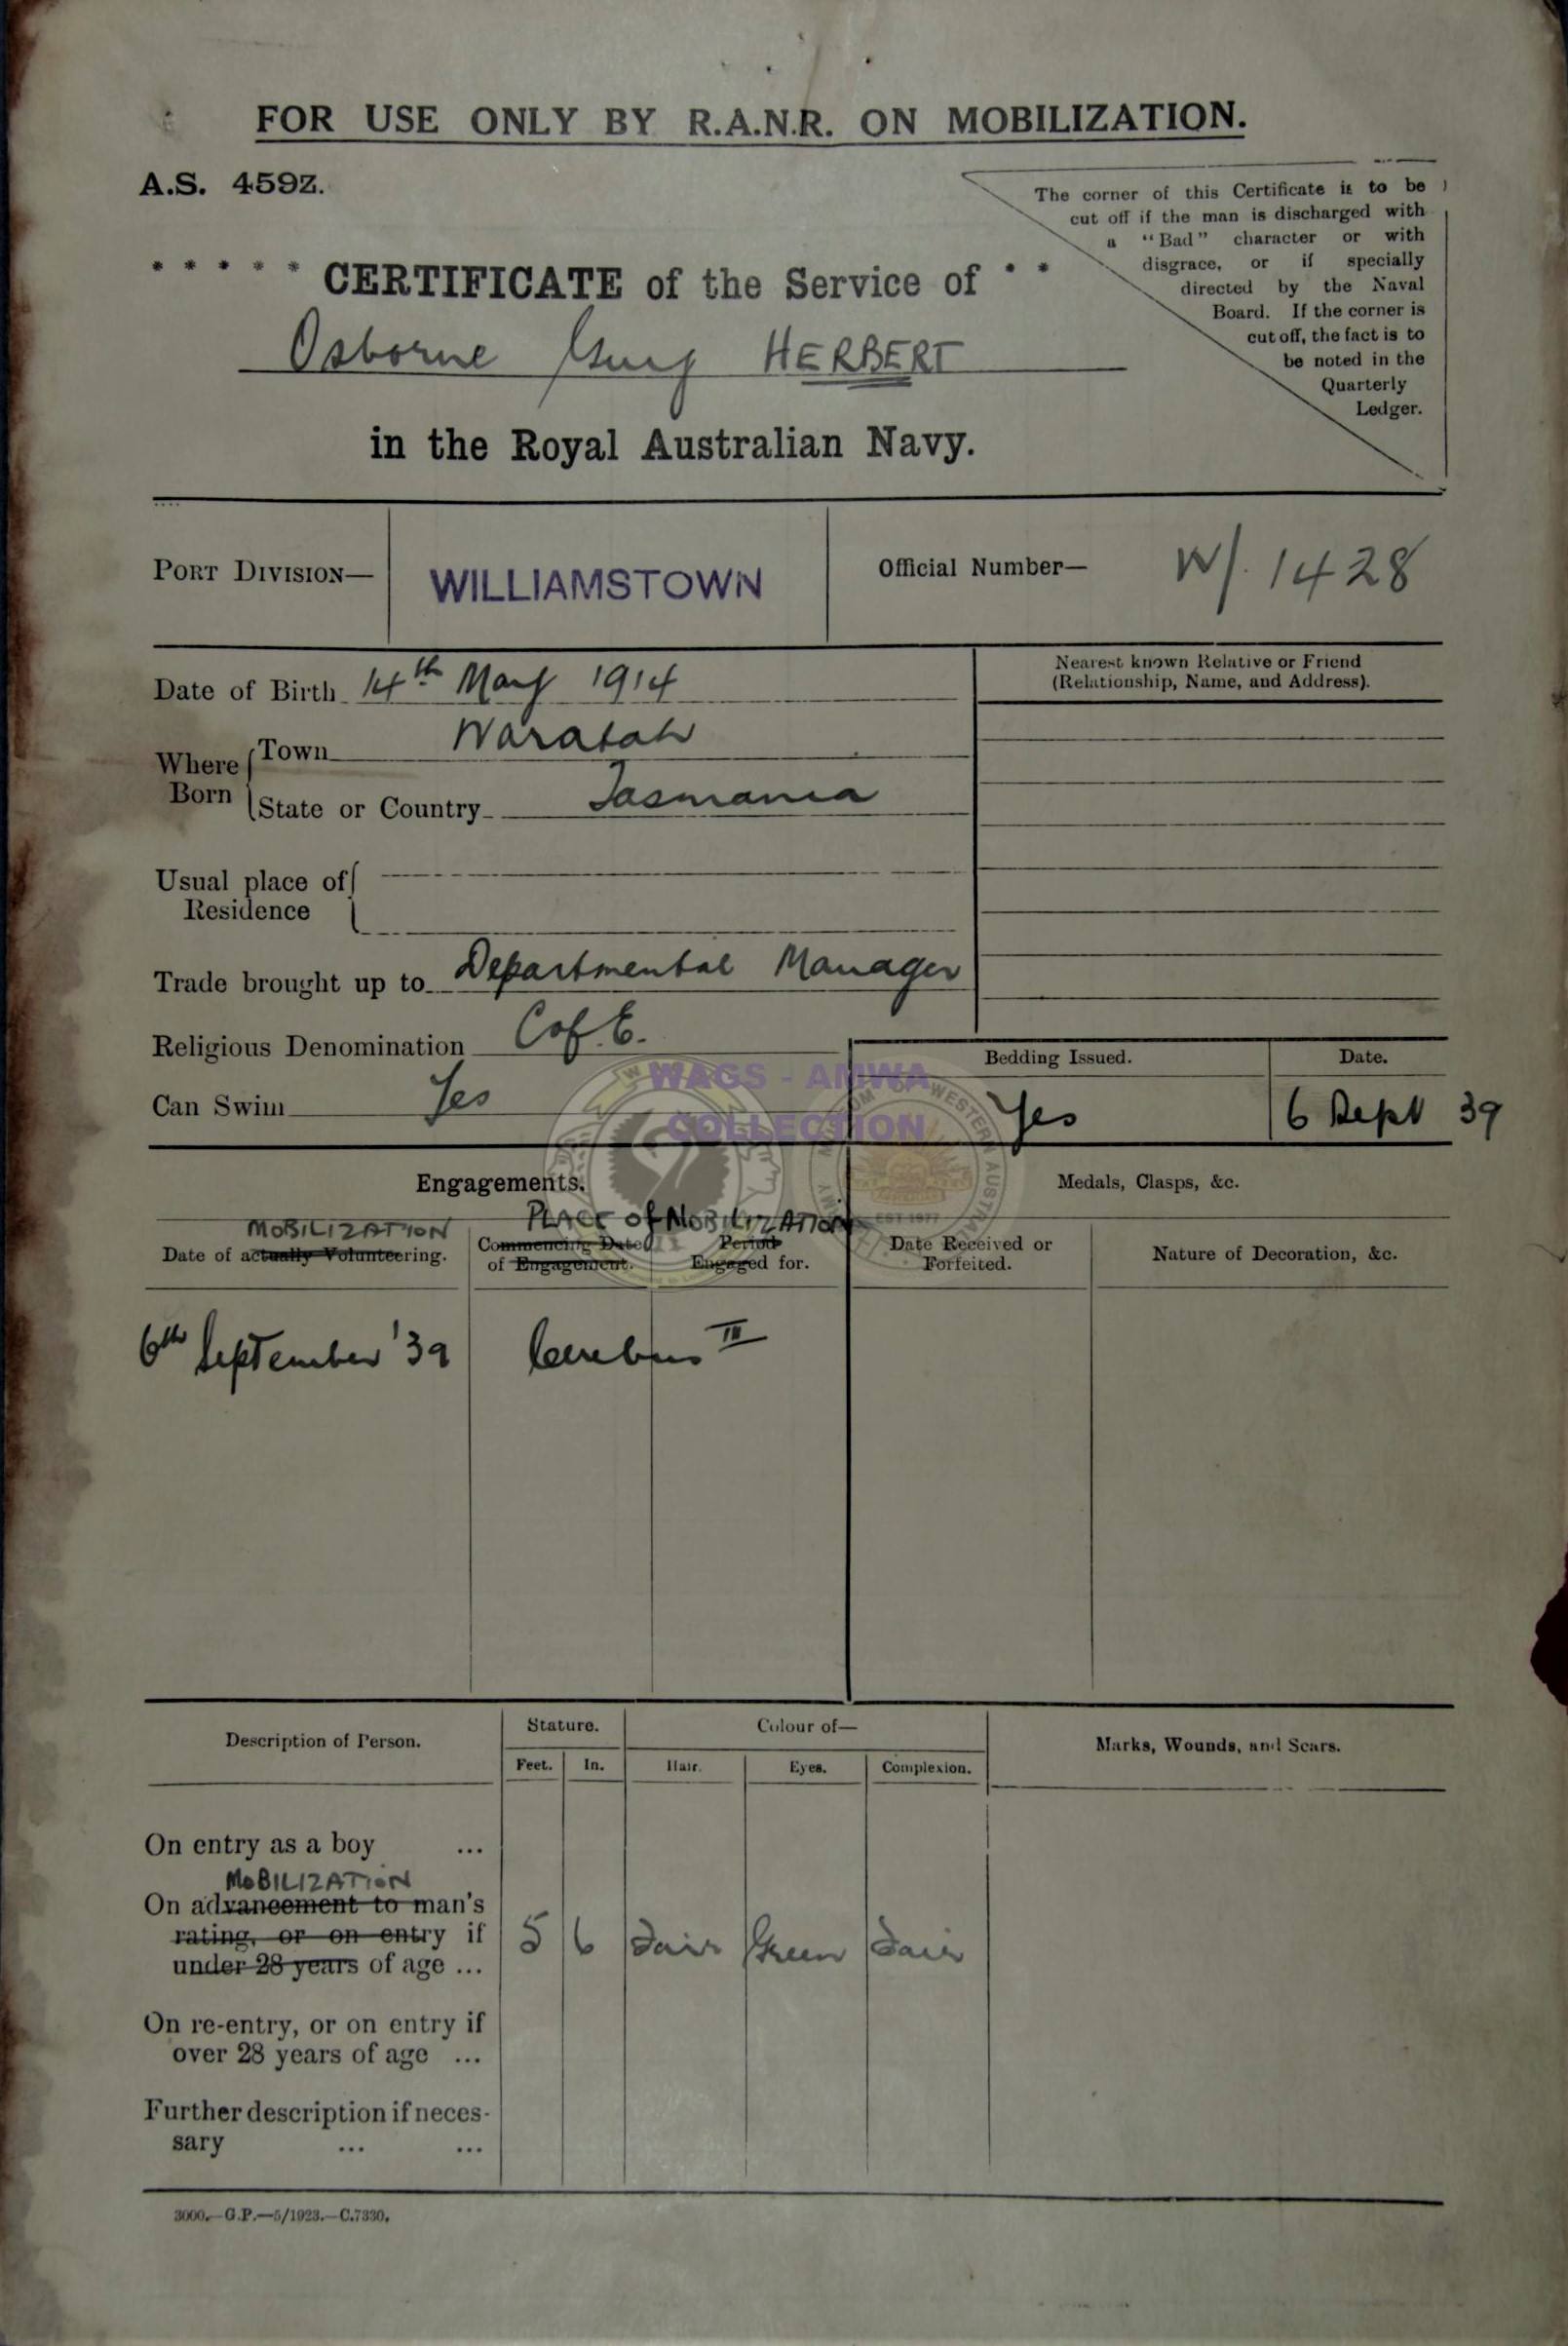 FOR USE ONLY BY R.A.N.R. ON MOBILIZATION.
A.S. 459Z.
The corner of this Certificate is to be
cut off if the man is discharged with
a "Bad" character or with
disgrace, or if specially
directed by the Naval
Board. If the corner is
cut off, the fact is to
be noted in the
Quarterly
Ledger.
* * * * * CERTIFICATE of the Service of * *
Osborne HERBERT
in the Royal Australian Navy.
PORT DIVISION— WILLIAMSTOWN Official Number— W/. 1428
Date of Birth 14th May 1914
Nearest known Relative or Friend
(Relationship, Name, and Address).
Where Born Town Waratah
State or Country Tasmania
Usual place of
Residence
Trade brought up to Departmental Manager
Religious Denomination C of E.
Can Swim Yes
Bedding Issued. Date.
Yes 6 Sept 39
WAGS - AMWA
COLLECTION
Engagements. Medals, Clasps, &c.
MOBILIZATION PLACE of MOBILIZATION
Date of actually Volunteering. Commencing Date of Engagement. Period Engaged for. Date Received or Forfeited. Nature of Decoration, &c.
6th September '39 Cerebus III
Description of Person. Stature. Colour of— Marks, Wounds, and Scars.
Feet. In. Hair. Eyes. Complexion.
On entry as a boy ...
MOBILIZATION
On advancement to man's
rating, or on entry if
under 28 years of age ... 5 6 Fair Green Fair
On re-entry, or on entry if
over 28 years of age ...
Further description if neces-
sary ... ...
3000.—G.P.—5/1923.—C.7330.